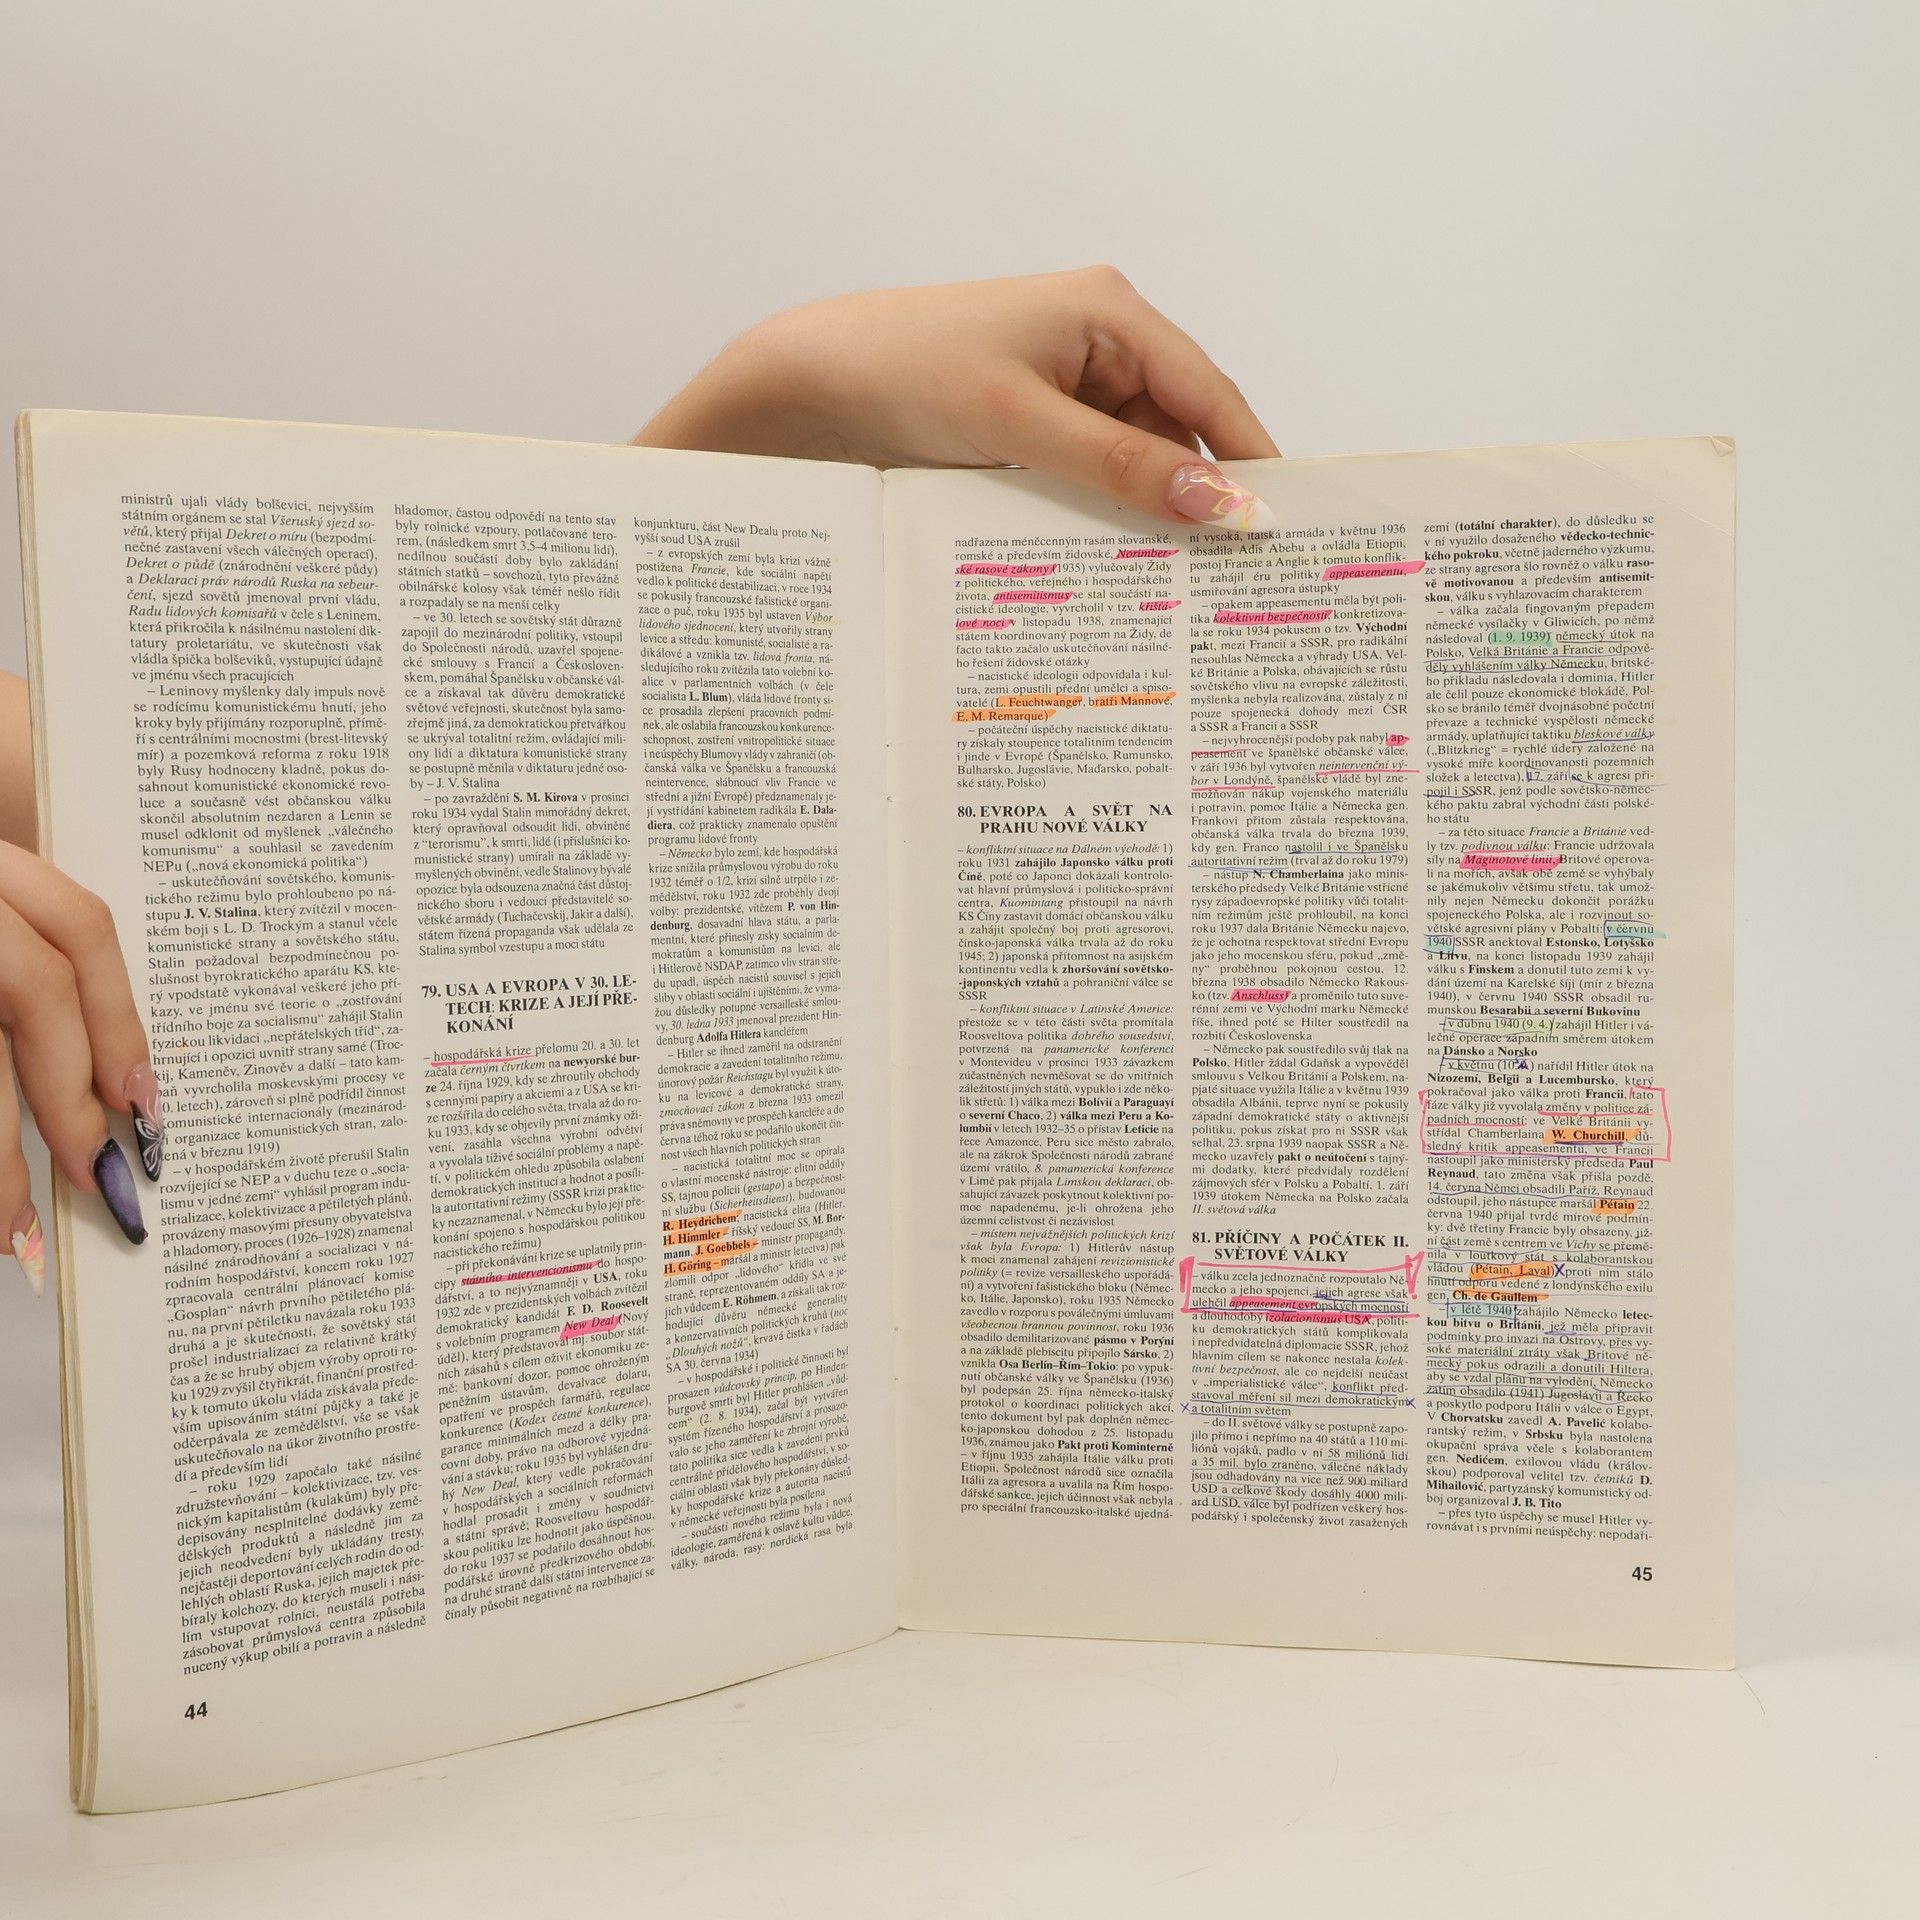 ministrů ujali vlády bolševici, nejvyšším
státním orgánem se stal Všeruský sjezd so-
větů, který přijal Dekret o míru (bezpodmí-
nečné zastavení všech válečných operací),
Dekret o půdě (znárodnění veškeré půdy)
a Deklaraci práv národů Ruska na sebeur-
čení, sjezd sovětů jmenoval první vládu,
Radu lidových komisařů v čele s Leninem,
která přikročila k násilnému nastolení dik-
tatury proletariátu, ve skutečnosti však
vládla špička bolševiků, vystupující údajně
ve jménu všech pracujících
– Leninovy myšlenky daly impuls nově
se rodícímu komunistickému hnutí, jeho
kroky byly přijímány rozporuplně, přímě-
ří s centrálními mocnostmi (brest-litevský
mír) a pozemková reforma z roku 1918
byly Rusy hodnoceny kladně, pokus do-
sáhnout komunistické ekonomické revo-
luce a současně vést občanskou válku
skončil absolutním nezdarem a Lenin se
musel odklonit od myšlenek „válečného
komunismu“ a souhlasil se zavedením
NEPu („nová ekonomická politika“)
– uskutečňování sovětského, komunis-
tického režimu bylo prohloubeno po ná-
stupu J. V. Stalina, který zvítězil v mocen-
ském boji s L. D. Trockým a stanul včele
komunistické strany a sovětského státu,
Stalin požadoval bezpodmínečnou po-
slušnost byrokratického aparátu KS, kte-
rý vpodstatě vykonával veškeré jeho pří-
kazy, ve jménu své teorie o „zostřování
třídního boje za socialismu“ zahájil Stalin
fyzickou likvidaci „nepřátelských tříd“, za-
hrnující i opozici uvnitř strany samé (Troc-
kij, Kameněv, Zinověv a další – tato kam-
paň vyvrcholila moskevskými procesy ve
0. letech), zároveň si plně podřídil činnost
komunistické internacionály (mezinárod-
í organizace komunistických stran, zalo-
žená v březnu 1919)
– v hospodářském životě přerušil Stalin
rozvíjející se NEP a v duchu teze o „socia-
lismu v jedné zemi“ vyhlásil program indu-
strializace, kolektivizace a pětiletých plánů,
provázený masovými přesuny obyvatelstva
a hladomory, proces (1926–1928) znamenal
násilné znárodňování a socializaci v ná-
rodním hospodářství, koncem roku 1927
zpracovala centrální plánovací komise
„Gosplan“ návrh prvního pětiletého plá-
nu, na první pětiletku navázala roku 1933
druhá a je skutečností, že sovětský stát
prošel industrializací za relativně krátký
čas a že se hrubý objem výroby oproti ro-
ku 1929 zvýšil čtyřikrát, finanční prostřed-
ky k tomuto úkolu vláda získávala přede-
vším upisováním státní půjčky a také je
odčerpávala ze zemědělství, vše se však
uskutečňovalo na úkor životního prostře-
dí a především lidí
– roku 1929 započalo také násilné
združstevňování – kolektivizace, tzv. ves-
nickým kapitalistům (kulakům) byly pře-
depisovány nesplnitelné dodávky země-
dělských produktů a následně jim za
jejich neodvedení byly ukládány tresty,
nejčastěji deportování celých rodin do od-
lehlých oblastí Ruska, jejich majetek pře-
bíraly kolchozy, do kterých museli i nási-
lím vstupovat rolníci, neustálá potřeba
zásobovat průmyslová centra způsobila
nucený výkup obilí a potravin a následně
44
hladomor, častou odpovědí na tento stav
byly rolnické vzpoury, potlačované tero-
rem, (následkem smrt 3,5–4 milionu lidí),
nedílnou součástí doby bylo zakládání
státních statků – sovchozů, tyto převážně
obilnářské kolosy však téměř nešlo řídit
a rozpadaly se na menší celky
– ve 30. letech se sovětský stát důrazně
zapojil do mezinárodní politiky, vstoupil
do Společnosti národů, uzavřel spojene-
cké smlouvy s Francií a Českosloven-
skem, pomáhal Španělsku v občanské vál-
ce a získával tak důvěru demokratické
světové veřejnosti, skutečnost byla samo-
zřejmě jiná, za demokratickou přetvářkou
se ukrýval totalitní režim, ovládající mili-
ony lidí a diktatura komunistické strany
se postupně měnila v diktaturu jedné oso-
by – J. V. Stalina
– po zavraždění S. M. Kirova v prosinci
roku 1934 vydal Stalin mimořádný dekret,
který opravňoval odsoudit lidi, obviněné
z “terorismu”, k smrti, lidé (i příslušníci ko-
munistické strany) umírali na základě vy-
myšlených obvinění, vedle Stalinovy bývalé
opozice byla odsouzena značná část důstoj-
nického sboru i vedoucí představitelé so-
větské armády (Tuchačevskij, Jakir a další),
státem řízená propaganda však udělala ze
Stalina symbol vzestupu a moci státu
79. USA A EVROPA V 30. LE-
TECH: KRIZE A JEJÍ PŘE-
KONÁNÍ
– hospodářská krize přelomu 20. a 30. let
začala černým čtvrtkem na newyorské bur-
ze 24. října 1929, kdy se zhroutily obchody
s cennými papíry a akciemi a z USA se kri-
ze rozšířila do celého světa, trvala až do ro-
ku 1933, kdy se objevily první známky oži-
vení, zasáhla všechna výrobní odvětví
a vyvolala tíživé sociální problémy a napě-
tí, v politickém ohledu způsobila oslabení
demokratických institucí a hodnot a posíli-
la autoritativní režimy (SSSR krizi praktic-
ky nezaznamenal, v Německu bylo její pře-
konání spojeno s hospodářskou politikou
nacistického režimu)
– při překonání krize se uplatnily prin-
cipy státního intervencionismu do hospo-
dářství, a to nejvýznamněji v USA, roku
1932 zde v prezidentských volbách zvítězil
demokratický kandidát F. D. Roosevelt
s volebním programem New Deal (Nový
úděl), který představoval mj. soubor stát-
ních zásahů s cílem oživit ekonomiku ze-
mě: bankovní dozor, pomoc ohroženým
peněžním ústavům, devalvace dolaru,
opatření ve prospěch farmářů, regulace
konkurence (Kodex čestné konkurence),
garance minimálních mezd a délky pra-
covní doby, právo na odborové vyjedná-
vání a stávku; roku 1935 byl vyhlášen dru-
hý New Deal, který vedle pokračování
v hospodářských a sociálních reformách
hodlal prosadit i změny v soudnictví
a státní správě; Rooseveltovu hospodář-
skou politiku lze hodnotit jako úspěšnou,
do roku 1937 se podařilo dosáhnout hos-
podářské úrovně předkrizového období,
na druhé straně další státní intervence za-
čínaly působit negativně na rozbíhající se
konjunkturu, část New Dealu proto Nej-
vyšší soud USA zrušil
– z evropských zemí byla krizí vážně
postižena Francie, kde sociální napětí
vedlo k politické destabilizaci, v roce 1934
se pokusily francouzské fašistické organi-
zace o puč, roku 1935 byl ustaven Výbor
lidového sjednocení, který utvořily strany
levice a středu: komunisté, socialisté a ra-
dikálové a vznikla tzv. lidová fronta, ná-
sledujícího roku zvítězila tato volební ko-
alice v parlamentních volbách (v čele
socialista L. Blum), vláda lidové fronty si-
ce prosadila zlepšení pracovních podmí-
nek, ale oslabila francouzskou konkurence-
schopnost, zostření vnitropolitické situace
i neúspěchy Blumovy vlády v zahraničí (ob-
čanská válka ve Španělsku a francouzská
neintervence, slábnoucí vliv Francie ve
střední a jižní Evropě) předznamenaly je-
jí vystřídání kabinetem radikála E. Dala-
diera, což prakticky znamenalo opuštění
programu lidové fronty
– Německo bylo zemí, kde hospodářská
krize snížila průmyslovou výrobu do roku
1932 téměř o 1/2, krizí silně utrpělo i ze-
mědělství, roku 1932 zde proběhly dvojí
volby: prezidentské, vítězem P. von Hin-
denburg, dosavadní hlava státu, a parla-
mentní, které přinesly zisky sociálním de-
mokratům a komunistům na levici, ale
i Hitlerově NSDAP, zatímco vliv stran stře-
du upadl, úspěch nacistů souvisel s jejich
sliby v oblasti sociální i ujištěními, že vyma-
žou důsledky potupné versailleské smlou-
vy, 30. ledna 1933 jmenoval prezident Hin-
denburg Adolfa Hitlera kancléřem
– Hitler se ihned zaměřil na odstranění
demokracie a zavedení totalitního režimu,
únorový požár Reichstagu byl využit k úto-
ku na levicové a demokratické strany,
zmocňovací zákon z března 1933 omezil
práva sněmovny ve prospěch kancléře a do
června téhož roku se podařilo ukončit čin-
nost všech politických stran
– nacistická totalitní moc se opírala
o vlastní mocenské nástroje: elitní oddíly
SS, tajnou policii (gestapo) a bezpečnost-
ní službu (Sicherheitsdienst), budovanou
R. Heydrichem, nacistická elita (Hitler,
H. Himmler – říšský vedoucí SS, M. Bor-
mann, J. Goebbels – ministr propagandy,
H. Göring – maršál a ministr letectva) pak
zlomili odpor „lidového“ křídla ve své
straně, reprezentovaném oddíly SA a je-
jich vůdcem E. Röhmem, a získali tak roz-
hodující důvěru německé generality
a konzervativních politických kruhů (noc
„Dlouhých nožů“, krvavá čistka v řadách
SA 30. června 1934)
– v hospodářské i politické činnosti byl
prosazen vůdcovský princip, po Hinden-
burgově smrti byl Hitler prohlášen „vůd-
cem“ (2. 8. 1934), začal být vytvářen
systém řízeného hospodářství a prosazo-
valo se jeho zaměření ke zbrojní výrobě,
tato politika sice vedla k zavedení prvků
centrálně přídělového hospodářství, v so-
ciální oblasti však byly překonány důsled-
ky hospodářské krize a autorita nacistů
v německé veřejnosti byla posílena
– součástí nového režimu byla i nová
ideologie, zaměřená k oslavě kultu vůdce,
války, národa, rasy: nordická rasa byla
nadřazena méněcenným rasám slovanské,
romské a především židovské, Norimber-
ské rasové zákony (1935) vylučovaly Židy
z politického, veřejného i hospodářského
života, antisemitismus se stal součástí na-
cistické ideologie, vyvrcholil v tzv. křišťá-
lové noci v listopadu 1938, znamenající
státem koordinovaný pogrom na Židy, de
facto takto začalo uskutečňování násilné-
ho řešení židovské otázky
– nacistické ideologii odpovídala i kul-
tura, zemi opustili přední umělci a spiso-
vatelé (L. Feuchtwanger, bratři Mannové,
E. M. Remarque)
– počáteční úspěchy nacistické diktatu-
ry získaly stoupence totalitním tendencím
i jinde v Evropě (Španělsko, Rumunsko,
Bulharsko, Jugoslávie, Maďarsko, pobalt-
ské státy, Polsko)
80. EVROPA A SVĚT NA
PRAHU NOVÉ VÁLKY
– konfliktní situace na Dálném východě: 1)
roku 1931 zahájilo Japonsko válku proti
Číně, poté co Japonci dokázali kontrolo-
vat hlavní průmyslová i politicko-správní
centra, Kuomintang přistoupil na návrh
KS Číny zastavit domácí občanskou válku
a zahájit společný boj proti agresorovi,
čínsko-japonská válka trvala až do roku
1945; 2) japonská přítomnost na asijském
kontinentu vedla k zhoršování sovětsko-
-japonských vztahů a pohraniční válce se
SSSR
– konfliktní situace v Latinské Americe:
přestože se v této části světa promítala
Rooseveltova politika dobrého sousedství,
potvrzená na panamerické konferenci
v Montevideu v prosinci 1933 závazkem
zúčastněných nevměšovat se do vnitřních
záležitostí jiných států, vypuklo i zde něko-
lik střetů: 1) válka mezi Bolívií a Paraguayí
o severní Chaco, 2) válka mezi Peru a Ko-
lumbií v letech 1932–35 o přístav Leticie na
řece Amazonce, Peru sice město zabralo,
ale na zákrok Společnosti národů zabrané
území vrátilo, 8. panamerická konference
v Limě pak přijala Limskou deklaraci, ob-
sahující závazek poskytnout kolektivní po-
moc napadenému, je-li ohrožena jeho
územní celistvost či nezávislost
– místem nejvážnějších politických krizí
však byla Evropa: 1) Hitlerův nástup
k moci znamenal zahájení revizionistické
politiky (= revize versailleského uspořádá-
ní) a vytvoření fašistického bloku (Němec-
ko, Itálie, Japonsko), roku 1935 Německo
zavedlo v rozporu s poválečnými úmluvami
všeobecnou brannou povinnost, roku 1936
obsadilo demilitarizované pásmo v Porýní
a na základě plebiscitu připojilo Sársko, 2)
vznikla Osa Berlín–Řím–Tokio: po vypuk-
nutí občanské války ve Španělsku (1936)
byl podepsán 25. října německo-italský
protokol o koordinaci politických akcí,
tento dokument byl pak doplněn němec-
ko-japonskou dohodou z 25. listopadu
1936, známou jako Pakt proti Kominterně
– v říjnu 1935 zahájila Itálie válku proti
Etiopii, Společnost národů sice označila
Itálii za agresora a uvalila na Řím hospo-
dářské sankce, jejich účinnost však nebyla
pro speciální francouzsko-italské ujedná-
ní vysoká, italská armáda v květnu 1936
obsadila Adis Abebu a ovládla Etiopii,
postoj Francie a Anglie k tomuto konflik-
tu zahájil éru politiky appeasementu,
usmiřování agresora ústupky
– opakem appeasementu měla být poli-
tika kolektivní bezpečnosti, konkretizova-
la se roku 1934 pokusem o tzv. Východní
pakt, mezi Francií a SSSR, pro radikální
nesouhlas Německa a výhrady USA, Vel-
ké Británie a Polska, obávajících se růstu
sovětského vlivu na evropské záležitosti,
myšlenka nebyla realizována, zůstaly z ní
pouze spojenecká dohody mezi ČSR
a SSSR a Francií a SSSR
– nejvyhrocenější podoby pak nabyl ap-
peasement ve španělské občanské válce,
v září 1936 byl vytvořen neintervenční vý-
bor v Londýně, španělské vládě byl zne-
možňován nákup vojenského materiálu
i potravin, pomoc Itálie a Německa gen.
Frankovi přitom zůstala respektována,
občanská válka trvala do března 1939,
kdy gen. Franco nastolil i ve Španělsku
autoritativní režim (trval až do roku 1979)
– nástup N. Chamberlaina jako minis-
terského předsedy Velké Británie vstřícné
rysy západoevropské politiky vůči totalit-
ním režimům ještě prohloubil, na konci
roku 1937 dala Británie Německu najevo,
že je ochotna respektovat střední Evropu
jako jeho mocenskou sféru, pokud „změ-
ny“ proběhnou pokojnou cestou, 12.
března 1938 obsadilo Německo Rakous-
ko (tzv. Anschluss) a proměnilo tuto suve-
rénní zemi ve Východní marku Německé
říše, ihned poté se Hilter soustředil na
rozbití Československa
– Německo pak soustředilo svůj tlak na
Polsko, Hitler žádal Gdaňsk a vypověděl
smlouvu s Velkou Británií a Polskem, na-
pjaté situace využila Itálie a v květnu 1939
obsadila Albánii, teprve nyní se pokusily
západní demokratické státy o aktivnější
politiku, pokus získat pro ni SSSR však
selhal, 23. srpna 1939 naopak SSSR a Ně-
mecko uzavřely pakt o neútočení s tajný-
mi dodatky, které předvídaly rozdělení
zájmových sfér v Polsku a Pobaltí, 1. září
1939 útokem Německa na Polsko začala
II. světová válka
81. PŘÍČINY A POČÁTEK II.
SVĚTOVÉ VÁLKY
– válku zcela jednoznačně rozpoutalo Ně-
mecko a jeho spojenci, jejich agrese však
ulehčil appeasement evropských mocností
a dlouhodobý izolacionismus USA, politi-
ku demokratických států komplikovala
i nepředvídatelná diplomacie SSSR, jehož
hlavním cílem se nakonec nestala kolek-
tivní bezpečnost, ale co nejdelší neúčast
v „imperialistické válce“, konflikt před-
stavoval měření sil mezi demokratickým
a totalitním světem
– do II. světové války se postupně zapo-
jilo přímo i nepřímo na 40 států a 110 mi-
liónů vojáků, padlo v ní 58 miliónů lidí
a 35 mil. bylo zraněno, válečné náklady
jsou odhadovány na více než 900 miliard
USD a celkové škody dosáhly 4000 mili-
ard USD, válce byl podřízen veškerý hos-
podářský i společenský život zasažených
zemí (totální charakter), do důsledku se
v ní využilo dosaženého vědecko-technic-
kého pokroku, včetně jaderného výzkumu,
ze strany agresora šlo rovněž o válku raso-
vě motivovanou a především antisemit-
skou, válku s vyhlazovacím charakterem
– válka začala fingovaným přepadem
německé vysílačky v Gliwicích, po němž
následoval (1. 9. 1939) německý útok na
Polsko, Velká Británie a Francie odpově-
děly vyhlášením války Německu, britské-
ho příkladu následovala i dominia, Hitler
ale čelil pouze ekonomické blokádě, Pol-
sko se bránilo téměř dvojnásobné početní
převaze a technické vyspělosti německé
armády, uplatňující taktiku bleskové války
(„Blitzkrieg“ = rychlé údery založené na
vysoké míře koordinovanosti pozemních
složek a letectva), 17. září se k agresi při-
pojil i SSSR, jenž podle sovětsko-němec-
kého paktu zabral východní části polské-
ho státu
– za této situace Francie a Británie ved-
ly tzv. podivnou válku: Francie udržovala
síly na Maginotově linii, Britové operova-
li na mořích, avšak obě země se vyhýbaly
se jakémukoliv většímu střetu, tak umož-
nily nejen Německu dokončit porážku
spojeneckého Polska, ale i rozvinout so-
větské agresivní plány v Pobaltí: v červnu
1940 SSSR anektoval Estonsko, Lotyšsko
a Litvu, na konci listopadu 1939 zahájil
válku s Finskem a donutil tuto zemi k vy-
dání území na Karelské šíji (mír z března
1940), v červnu 1940 SSSR obsadil ru-
munskou Besarabii a severní Bukovinu
– v dubnu 1940 (9. 4.) zahájil Hitler i vá-
lečné operace západním směrem útokem
na Dánsko a Norsko
– v květnu (10.) nařídil Hitler útok na
Nizozemí, Belgii a Lucembursko, který
pokračoval jako válka proti Francii, tato
fáze války již vyvolala změny v politice zá-
padních mocností: ve Velké Británii vy-
střídal Chamberlaina W. Churchill, dů-
sledný kritik appeasementu, ve Francii
nastoupil jako ministerský předseda Paul
Reynaud, tato změna však přišla pozdě,
14. června Němci obsadili Paříž, Reynaud
odstoupil, jeho nástupce maršál Pétain 22.
června 1940 přijal tvrdé mírové podmín-
ky: dvě třetiny Francie byly obsazeny, již-
ní část země s centrem ve Vichy se přemě-
nila v loutkový stát s kolaborantskou
vládou (Pétain, Laval) proti nim stálo
hnutí odporu vedené z londýnského exilu
gen. Ch. de Gaullem
– v létě 1940 zahájilo Německo letec-
kou bitvu o Británii, jež měla připravit
podmínky pro invazi na Ostrovy, přes vy-
soké materiální ztráty však Britové ně-
mecký pokus odrazili a donutili Hitlera,
aby se vzdal plánu na vylodění, Německo
zatím obsadilo (1941) Jugoslávii a Řecko
a poskytlo podporu Itálii v válce o Egypt,
V Chorvatsku zavedl A. Pavelić kolabo-
rantský režim, v Srbsku byla nastolena
okupační správa včele s kolaborantem
gen. Nedićem, exilovou vládu (královs-
kou) podporoval velitel tzv. četniků D.
Mihailović, partyzánský komunistický od-
boj organizoval J. B. Tito
– přes tyto úspěchy se musel Hitler vy-
rovnávat i s prvními neúspěchy: nepodaři-
45